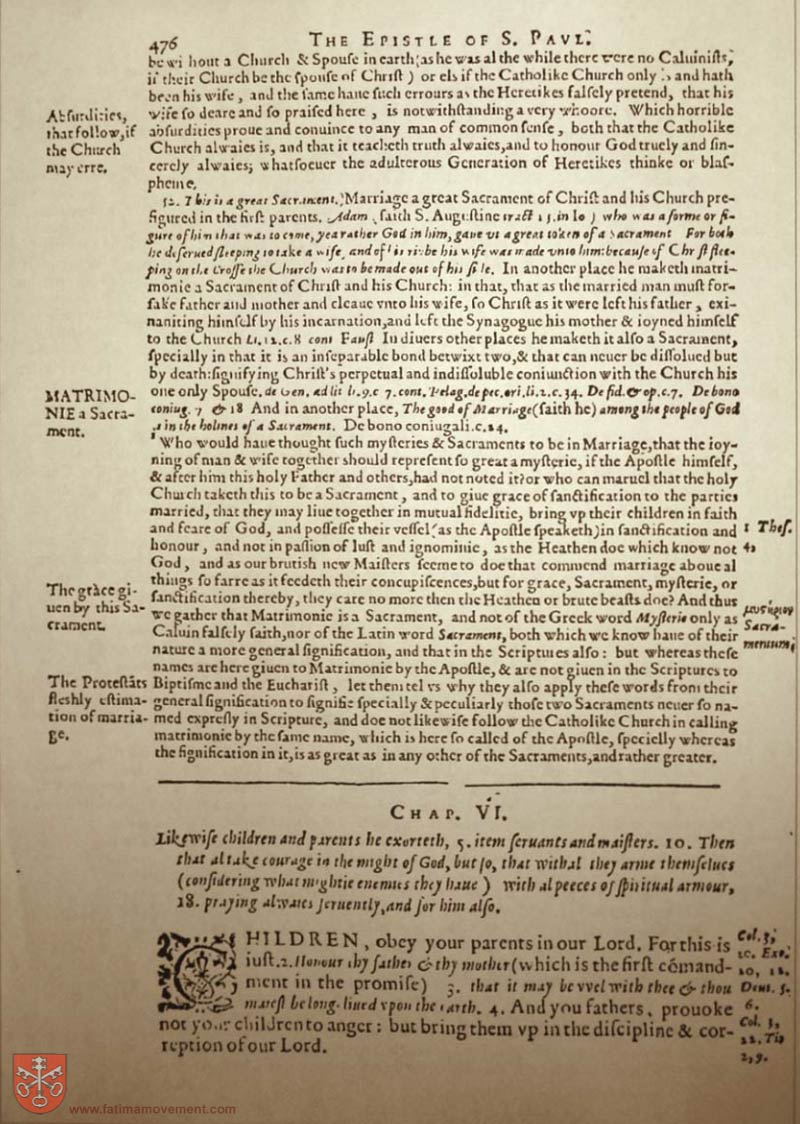 476
THE EPISTLE OF S. PAVL.
be wi hout a Church & Spouſe in earth (as he was al the while there were no Caluiniſts,
if their Church be the ſpouſe of Chriſt) or els if the Catholike Church only is and hath
been his wife, and the ſame haue ſuch errours as the Heretikes falſely pretend, that his
wife ſo deare and ſo praiſed here, is notwithſtanding a very whoore. Which horrible
abſurdities proue and conuince to any man of common ſenſe, both that the Catholike
Church alwaies is, and that it teacheth truth alwaies, and to honour God truely and ſin-
cerely alwaies; whatſoeuer the adulterous Generation of Heretikes thinke or blaſ-
pheme.
Abſurdities,
that follow, if
the Church
may erre.
32. This is a great Sacrament.) Marriage a great Sacrament of Chriſt and his Church pre-
figured in the firſt parents. Adam (ſaith S. Auguſtine tract 15. in Io) who was a forme or fi-
gure of him that was to come, yea rather God in him, gaue vs a great token of a Sacrament For both
he deſerued ſleeping to take a wife, and of his ribbe his wife was made vnto him: becauſe of Chriſt ſlee-
ping on the Croſſe the Church was to be made out of his ſide. In another place he maketh matri-
monie a Sacrament of Chriſt and his Church: in that, that as the married man muſt for-
ſake father and mother and cleaue vnto his wife, ſo Chriſt as it were left his father, exi-
naniting himſelf by his incarnation, and left the Synagogue his mother & ioyned himſelf
to the Church Li. 12. c. 8 cont Fauſt In diuers other places he maketh it alſo a Sacrament,
ſpecially in that it is an inſeparable bond betwixt two, & that can neuer be diſſolued but
by death: ſignifying Chriſt's perpetual and indiſſoluble coniunction with the Church his
one only Spouſe. de Gen. ad lit li. 9. c 7. cont. Pelag. de pec. ori. li. 2. c. 34. De fid. & op. c. 7. De bono
coniug. 7 & 18 And in another place, The good of Marriage (ſaith he) among the people of God
is in the holines of a Sacrament. De bono coniugali. c. 24.
MATRIMO-
NIE a Sacra-
ment.
Who would haue thought ſuch myſteries & Sacraments to be in Marriage, that the ioy-
ning of man & wife together should repreſent ſo great a myſterie, if the Apoſtle himſelf,
& after him this holy Father and others, had not noted it? or who can maruel that the holy
Church taketh this to be a Sacrament, and to giue grace of ſanctification to the parties
married, that they may liue together in mutual fidelitie, bring vp their children in faith
and feare of God, and poſſeſſe their veſſel (as the Apoſtle ſpeaketh) in ſanctification and
honour, and not in paſſion of luſt and ignominie, as the Heathen doe which know not
God, and as our brutish new Maiſters ſeeme to doe that commend marriage aboue al
things ſo farre as it feedeth their concupiſcences, but for grace, Sacrament, myſterie, or
ſanctification thereby, they care no more then the Heathen or brute beaſts doe? And thus
we gather that Matrimonie is a Sacrament, and not of the Greek word Myſterie only as
Caluin falſely ſaith, nor of the Latin word Sacrament, both which we know haue of their
nature a more general ſignification, and that in the Scriptures alſo: but whereas theſe
names are here giuen to Matrimonie by the Apoſtle, & are not giuen in the Scriptures to
Biptiſme and the Euchariſt, let them tel vs why they alſo apply theſe words from their
general ſignification to ſignifie ſpecially & peculiarly thoſe two Sacraments neuer ſo na-
med expreſly in Scripture, and doe not likewiſe follow the Catholike Church in calling
matrimonie by the ſame name, which is here ſo called of the Apoſtle, ſpecielly whereas
the ſignification in it, is as great as in any other of the Sacraments, and rather greater.
1 Theſ.
4,
The grace gi-
uen by this Sa-
crament.
μυστήριον
Sacra-
mentum,
The Proteſtãts
fleshly eſtima-
tion of marria-
ge.
CHAP. VI.
Likewiſe children and parents he exorteth, 5. item ſeruants and maiſters. 10. Then
that al take courage in the might of God, but ſo, that withal they arme themſelues
(conſidering what mightie enemies they haue) with al peeces of ſpiritual armour,
18. praying alwaies feruently, and for him alſo.
CHILDREN, obey your parents in our Lord. For this is
iuſt. 2. Honour thy father & thy mother (which is the firſt cõmand-
ment in the promiſe) 3. that it may be vvel with thee & thou
maieſt be long-liued vpon the earth. 4. And you fathers, prouoke
not your children to anger: but bring them vp in the diſcipline & cor-
reption of our Lord.
Col. 3,
20. Exo.
20, 12.
Deut. 5.
6.
Col. 3,
22. Tit
2, 9.
www.fatimamovement.com